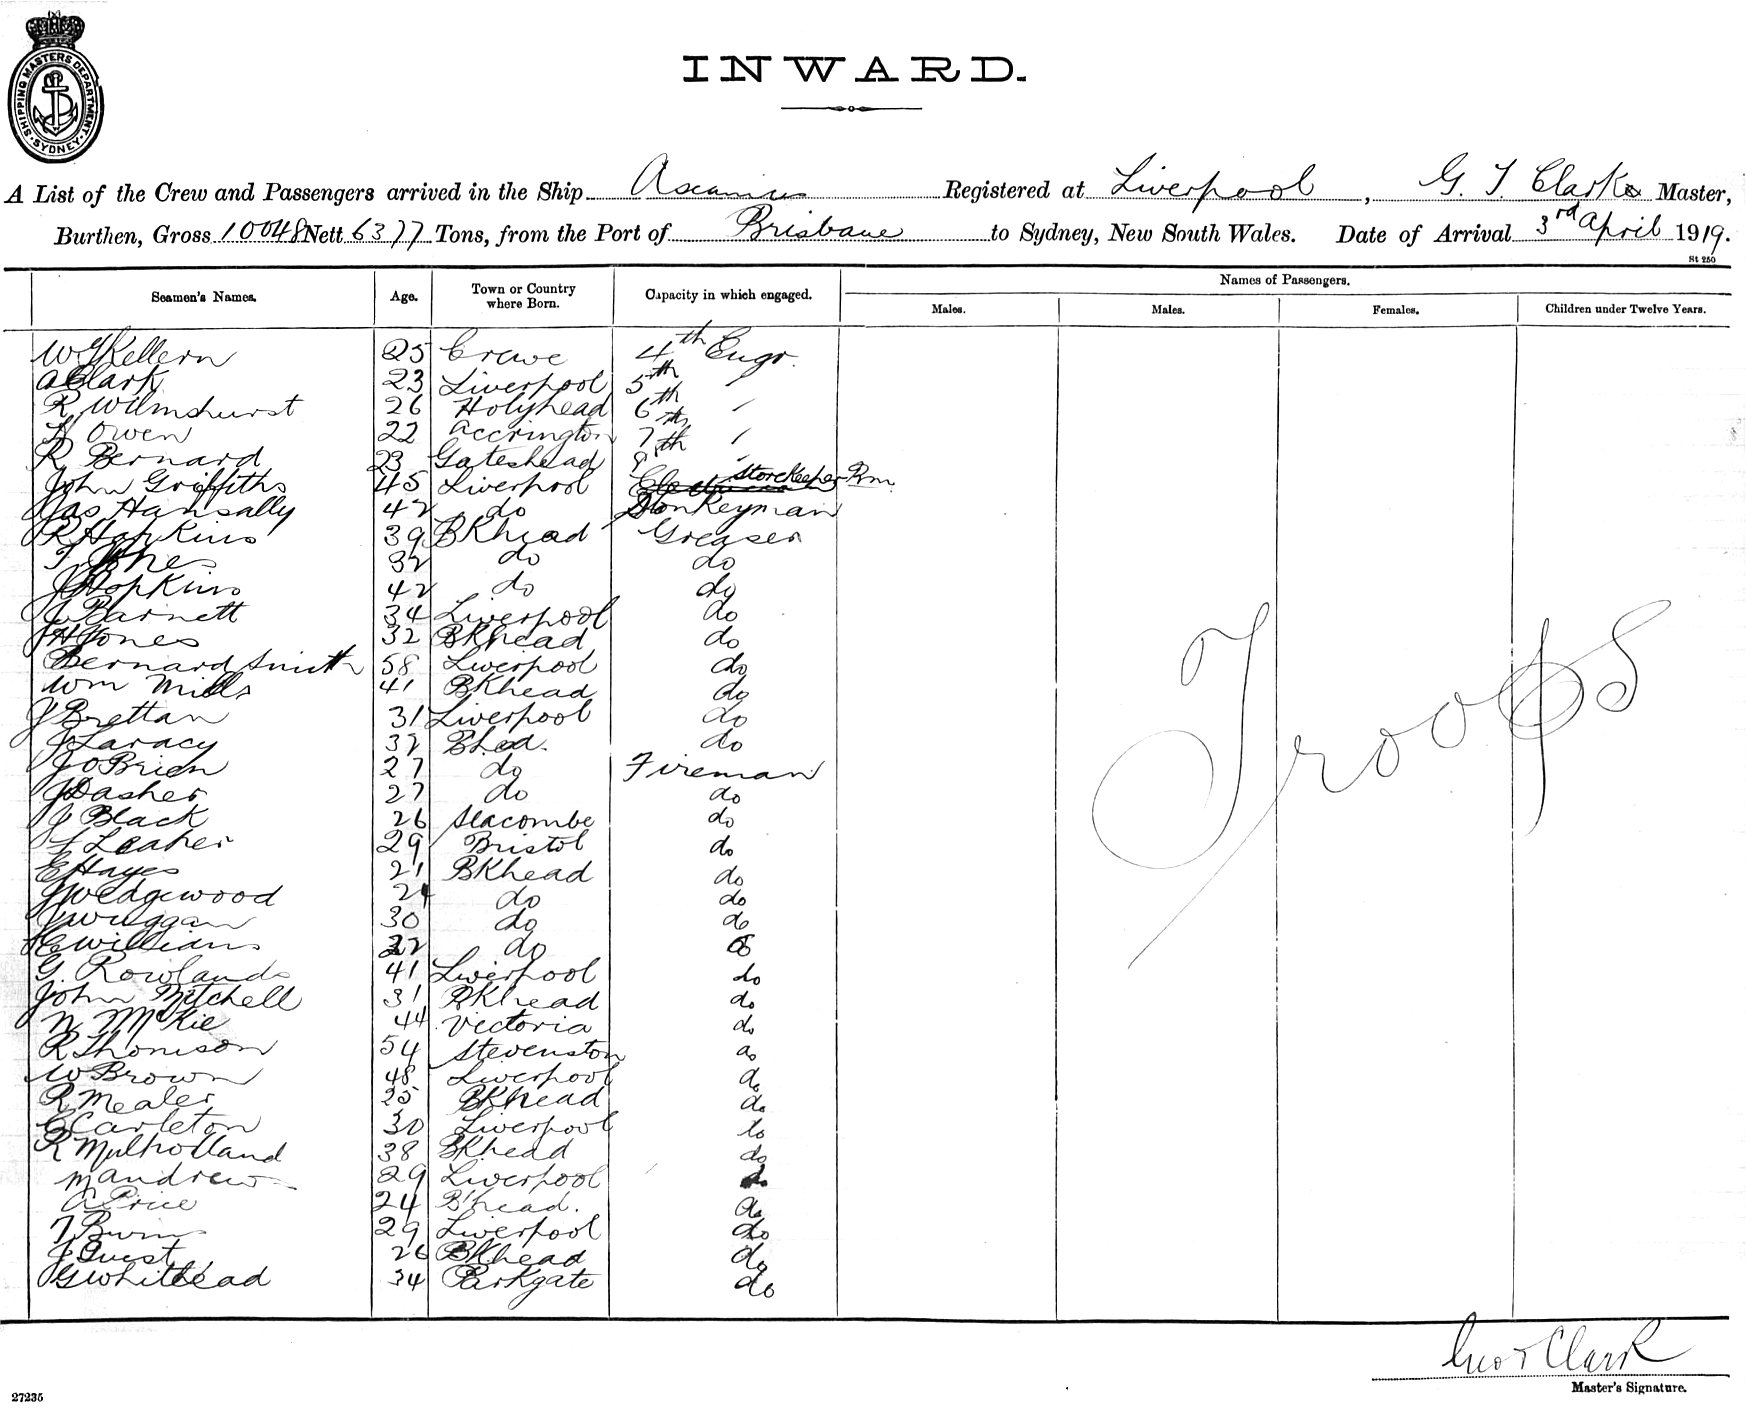 SHIPPING MASTERS DEPARTMENT. SYDNEY
INWARD.
A List of the Crew and Passengers arrived in the Ship Ascanius Registered at Liverpool, G. T. Clark Master,
Burthen, Gross 10048 Nett 6377 Tons, from the Port of Brisbane to Sydney, New South Wales. Date of Arrival 3rd April 1919.
St 250
Seamen's Names. Age. Town or Country where Born. Capacity in which engaged. Names of Passengers.
Males. Males. Females. Children under Twelve Years.
W Kellern 25 Crewe 4th Engr.
A Clark 23 Liverpool 5th "
R Wilmshurst 26 Holyhead 6th "
H Owen 22 Accrington 7th "
R Bernard 23 Gateshead 8th "
John Griffiths 45 Liverpool Storekeeper
Jas Hansally 42 do Donkeyman
R Hopkins 39 BKhead Greaser
T Jones 32 do do
J Hopkins 42 do do
J Barnett 34 Liverpool do
H Jones 32 BKhead do
Bernard Smith 58 Liverpool do
Wm Mills 41 BKhead do
J Brettan 31 Liverpool do
J Laracy 32 Bhead. do
J O Brien 27 do Fireman
J Dasher 27 do do
J Black 26 Seacombe do
Leaher 29 Bristol do
E Hayes 21 BKhead do
J Wedgewood 24 do do
J Wuggan 30 do do
E Williams 32 do do
G. Rowlands 41 Liverpool do
John Mitchell 31 BKhead do
N McKie 44 Victoria do
R Thomson 54 Stevenston do
W Brown 48 Liverpool do
R Mealer 25 BKhead do
C Carleton 30 Liverpool do
R Mulholland 38 BKhead do
M Andrew 29 Liverpool do
A Price 24 B'head. do
T 29 Liverpool do
J Guest 26 BKhead do
G Whitehead 34 Parkgate do
Troops
Geo T Clark
Master's Signature.
27235